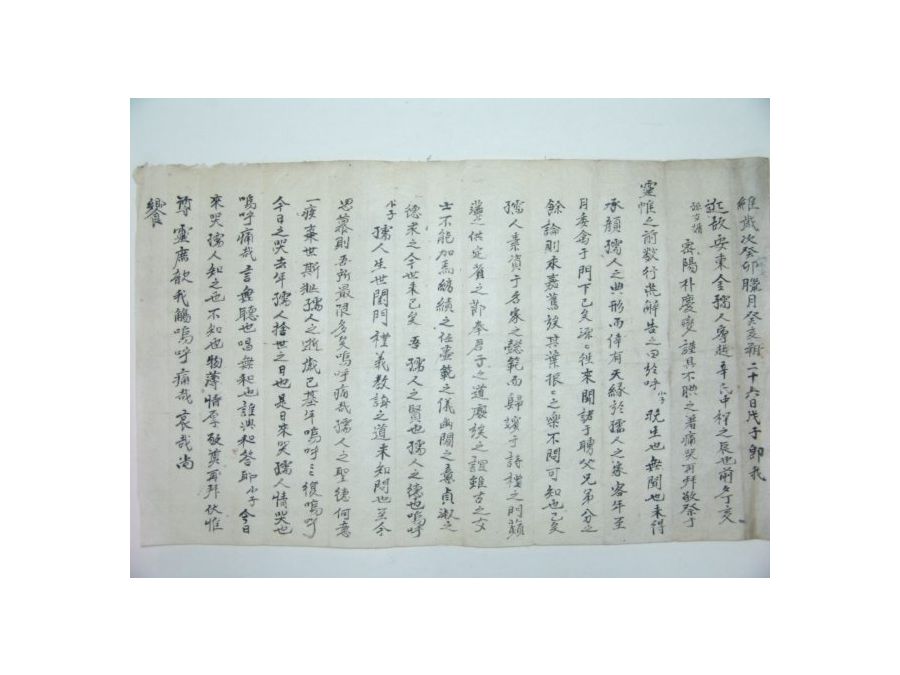 維歲次癸卯臘月癸亥朔二十六日戊子卽我
近故安東金孺人 辛 中祥之辰也前夕丁亥
密陽朴慶燮謹具不腆之著痛哭再拜敬祭于
靈帷之前数行荒解告之曰於呼小子晩生也無聞也未得
承顔孺人之典形而偉有天緣於孺人之家客年至
月委禽于門下已矣 往來聞諸于聘父兄弟分之
餘論則來嘉 族其葉振之樂不問可知也已矣
孺人素資于名家之懿範而歸 于詩禮之門蘋
蘩供定省之節奉君子之道 誼雖古之女
士不能加焉 績之任壼範之儀幽閒之意貞淑之
德求之今世未已矣吾孺人之賢也孺人之德也嗚呼
小子孺人生世閨門禮義教誨之道未知問也至今
思慕則吾所最恨多矣嗚呼痛哉孺人之聖德何意
一疾棄世斯 孺人之逝歲已基年嗚呼〻復嗚呼
今日之哭去年孺人捨世之日也是日來哭孺人情哭也
嗚呼痛哉言無聽也唱無和也誰與和答耶小子今日
來哭孺人知之也不知也物薄情厚敬奠再拜伏惟
尊靈庶歆我觴嗚呼痛哉哀哉尚
饗